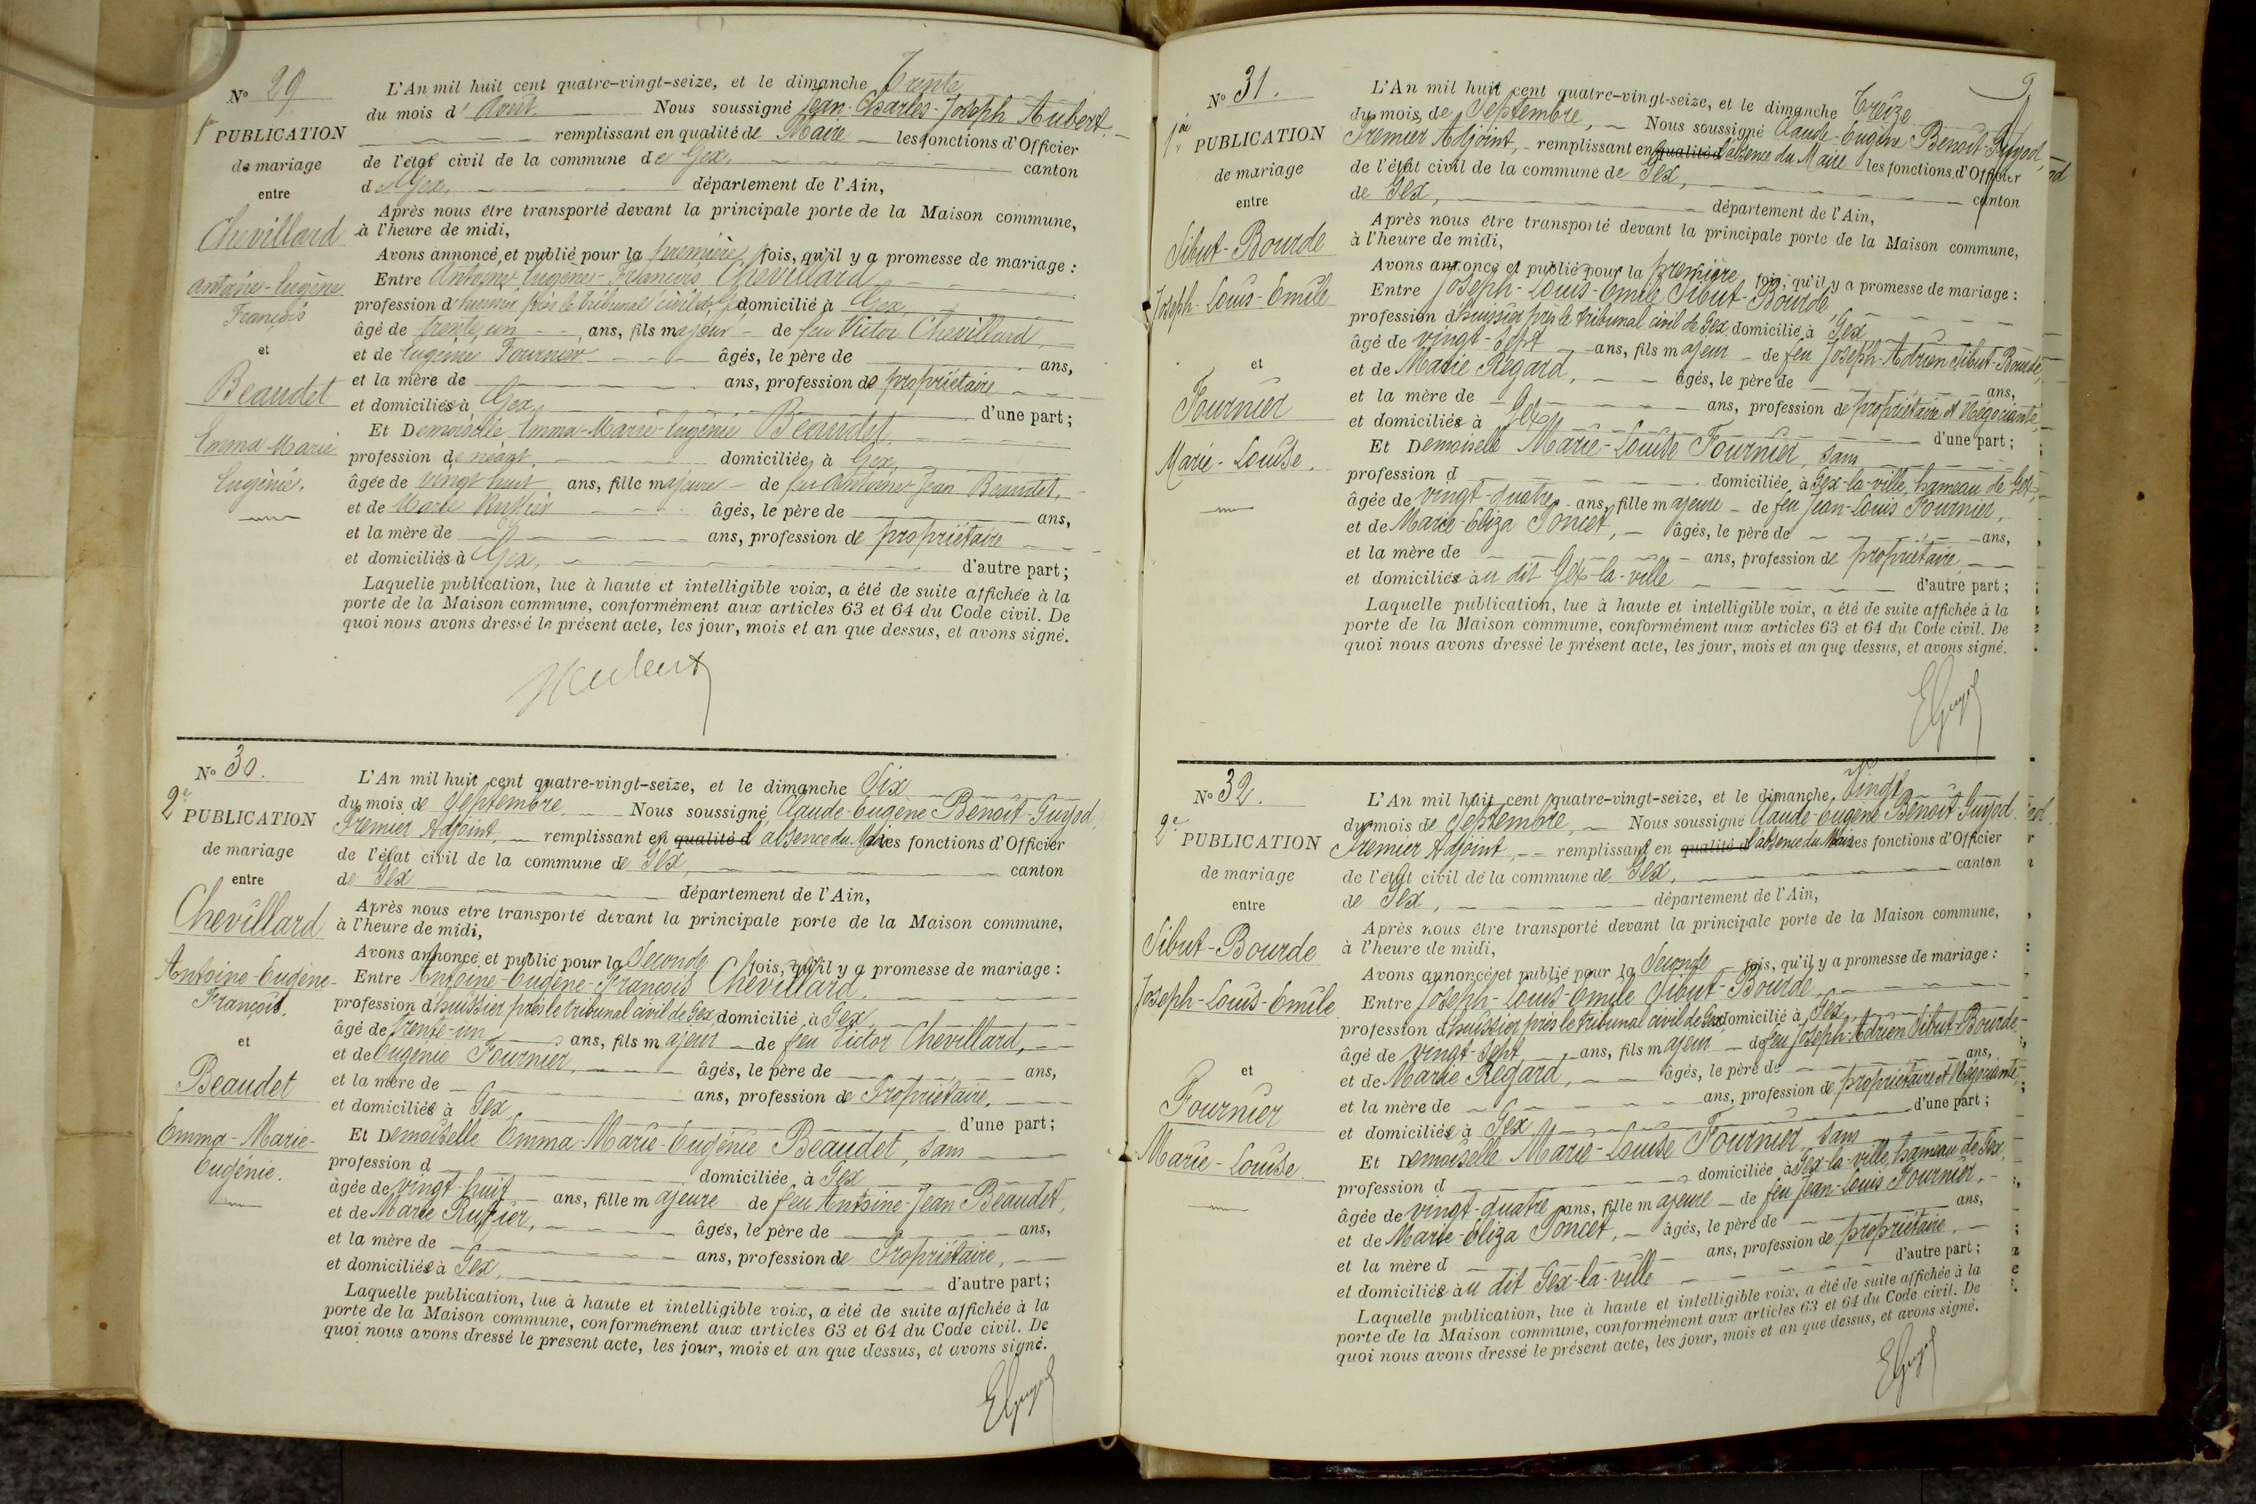 N° 29
1re PUBLICATION
de mariage
entre
Chevillard
Antoine-Eugène
François
et
Beaudet
Emma-Marie
Eugénie.
L'An mil huit cent quatre-vingt-seize, et le dimanche Trente
du mois d'Août. Nous soussigné Jean-Charles-Joseph Hubert,
remplissant en qualité de Maire les fonctions d'Officier
de l'état civil de la commune de Gex, canton
de Gex, département de l'Ain,
Après nous être transporté devant la principale porte de la Maison commune,
à l'heure de midi,
Avons annoncé et publié pour la première fois, qu'il y a promesse de mariage :
Entre Antoine-Eugène-François Chevillard
profession d'huissier près le tribunal civil de Gex domicilié à Gex,
âgé de trente-un ans, fils majeur de feu Victor Chevillard,
et de Eugénie Fournier âgés, le père de ans,
et la mère de ans, profession de propriétaire
et domiciliés à Gex, d'une part ;
Et Demoiselle Emma-Marie-Eugénie Beaudet,
profession de néant, domiciliée à Gex,
âgée de vingt huit ans, fille majeure de feu Antoine-Jean Beaudet,
et de Marie Ruffier âgés, le père de ans,
et la mère de ans, profession de propriétaire
et domiciliés à Gex, d'autre part ;
Laquelle publication, lue à haute et intelligible voix, a été de suite affichée à la
porte de la Maison commune, conformément aux articles 63 et 64 du Code civil. De
quoi nous avons dressé le présent acte, les jour, mois et an que dessus, et avons signé.
JHubert
N° 30.
2e PUBLICATION
de mariage
entre
Chevillard
Antoine-Eugène-
François.
et
Beaudet
Emma-Marie-
Eugénie.
L'An mil huit cent quatre-vingt-seize, et le dimanche Six
du mois de Septembre. Nous soussigné Claude-Eugène Benoit-Guyod,
Premier Adjoint, remplissant en qualité d absence du Maire les fonctions d'Officier
de l'état civil de la commune de Gex, canton
de Gex département de l'Ain,
Après nous être transporté devant la principale porte de la Maison commune,
à l'heure de midi,
Avons annoncé et publié pour la Seconde fois, qu'il y a promesse de mariage :
Entre Antoine-Eugène-François Chevillard.
profession d'huissier près le tribunal civil de Gex, domicilié à Gex
âgé de trente-un ans, fils majeur de feu Victor Chevillard,
et de Eugénie Fournier, âgés, le père de ans,
et la mère de ans, profession de Propriétaire,
et domiciliés à Gex d'une part ;
Et Demoiselle Emma-Marie-Eugénie Beaudet, sans
profession d domiciliée à Gex
âgée de vingt-huit ans, fille majeure de feu Antoine-Jean Beaudet,
et de Marie Ruffier, âgés, le père de ans,
et la mère de ans, profession de Propriétaire,
et domiciliés à Gex, d'autre part ;
Laquelle publication, lue à haute et intelligible voix, a été de suite affichée à la
porte de la Maison commune, conformément aux articles 63 et 64 du Code civil. De
quoi nous avons dressé le présent acte, les jour, mois et an que dessus, et avons signé.
EGuyod
9
N° 31.
1re PUBLICATION
de mariage
entre
Sibut-Bourde
Joseph-Louis-Emile
et
Fournier
Marie-Louise.
L'An mil huit cent quatre-vingt-seize, et le dimanche Treize
du mois de Septembre, Nous soussigné Claude-Eugène Benoit-Guyod,
Premier Adjoint, remplissant en qualité d l'absence du Maire les fonctions d'Officier
de l'état civil de la commune de Gex, canton
de Gex, département de l'Ain,
Après nous être transporté devant la principale porte de la Maison commune,
à l'heure de midi,
Avons annoncé et publié pour la première fois, qu'il y a promesse de mariage :
Entre Joseph-Louis-Emile Sibut-Bourde
profession d'huissier près le tribunal civil de Gex, domicilié à Gex
âgé de vingt-sept ans, fils majeur de feu Joseph-Adrien Sibut-Bourde,
et de Marie Regard, âgés, le père de ans,
et la mère de ans, profession de propriétaire et Négociante,
et domiciliés à Gex d'une part ;
Et Demoiselle Marie-Louise Fournier, sans
profession d domiciliée à Gex-la-ville, hameau de Gex,
âgée de vingt-quatre ans, fille majeure de feu Jean-Louis Fournier,
et de Marie-Eliza Poncet, âgés, le père de ans,
et la mère de ans, profession de propriétaire
et domiciliés au dit Gex-la-ville d'autre part ;
Laquelle publication, lue à haute et intelligible voix, a été de suite affichée à la
porte de la Maison commune, conformément aux articles 63 et 64 du Code civil. De
quoi nous avons dressé le présent acte, les jour, mois et an que dessus, et avons signé.
EGuyod
N° 32.
2e PUBLICATION
de mariage
entre
Sibut-Bourde
Joseph-Louis-Emile
et
Fournier
Marie-Louise.
L'An mil huit cent quatre-vingt-seize, et le dimanche Vingt
du mois de Septembre, Nous soussigné Claude-Eugène Benoit Guyod,
Premier Adjoint, remplissant en qualité d l'absence du Maire les fonctions d'Officier
de l'état civil de la commune de Gex, canton
de Gex, département de l'Ain,
Après nous être transporté devant la principale porte de la Maison commune,
à l'heure de midi,
Avons annoncé et publié pour la Seconde fois, qu'il y a promesse de mariage :
Entre Joseph-Louis-Emile Sibut-Bourde,
profession d'huissier près le tribunal civil de Gex domicilié à Gex,
âgé de vingt-sept ans, fils majeur de feu Joseph-Adrien Sibut-Bourde
et de Marie Regard, âgés, le père de ans,
et la mère de ans, profession de propriétaire et Négociante,
et domiciliés à Gex d'une part ;
Et Demoiselle Marie-Louise Fournier, sans
profession d domiciliée à Gex-la-ville, hameau de Gex,
âgée de vingt-quatre ans, fille majeure de feu Jean-Louis Fournier,
et de Marie-Eliza Poncet, âgés, le père de ans,
et la mère d ans, profession de propriétaire,
et domiciliés au dit Gex-la-ville d'autre part ;
Laquelle publication, lue à haute et intelligible voix, a été de suite affichée à la
porte de la Maison commune, conformément aux articles 63 et 64 du Code civil. De
quoi nous avons dressé le présent acte, les jour, mois et an que dessus, et avons signé.
EGuyod